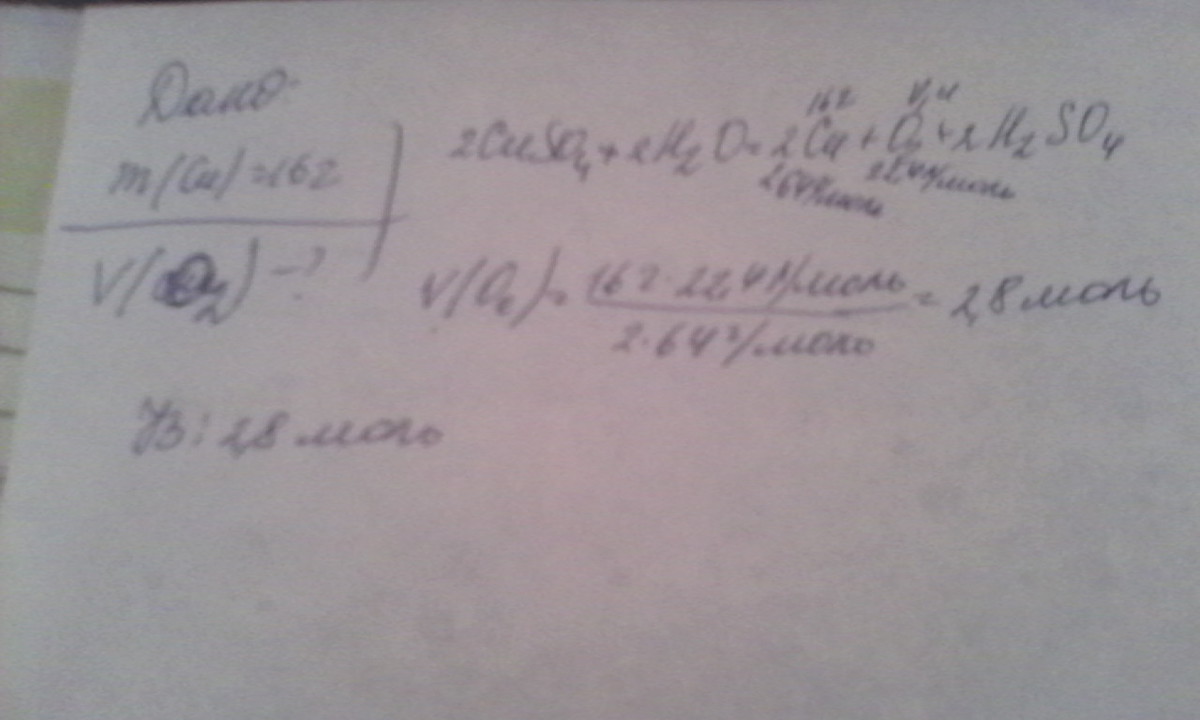 Дано
m(Cu)=16г
V(O2)-?
16г V, л
2CuSO4+2H2O=2Cu+O2+2H2SO4
2·64г/моль 22,4л/моль
V(O2)=16г·22,4л/моль
2·64г/моль
=2,8моль
Уз:2,8моль